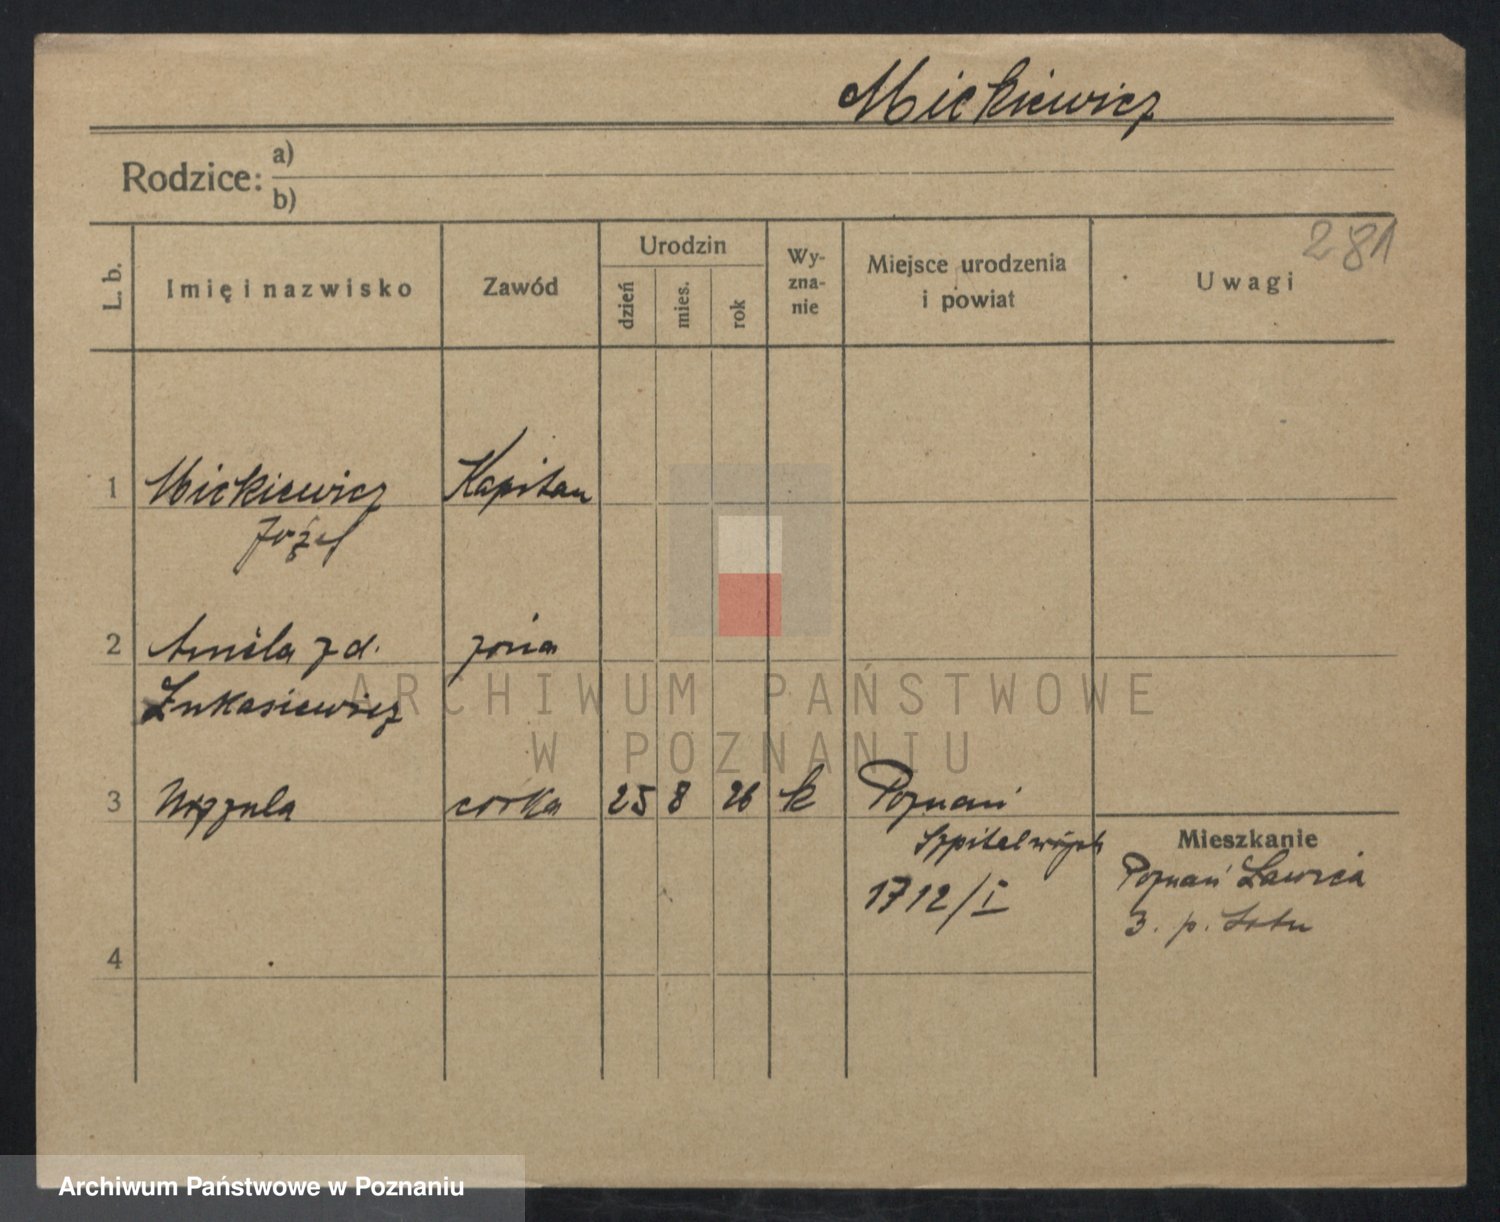 Mickiewicz
Rodzice: a)
b)
281
L. b. Imię i nazwisko Zawód Urodzin dzień mies. rok Wy-zna-nie Miejsce urodzenia i powiat Uwagi
1 Mickiewicz Kapitan
Józef
2 Aniela z d. żona
Łukasiewicz
ARCHIWUM PAŃSTWOWE
W POZNANIU
3 córka 25 8 26 k Poznań
Mieszkanie
Poznań Ławica
1712/I
3. p. Lotn
4
Archiwum Państwowe w Poznaniu